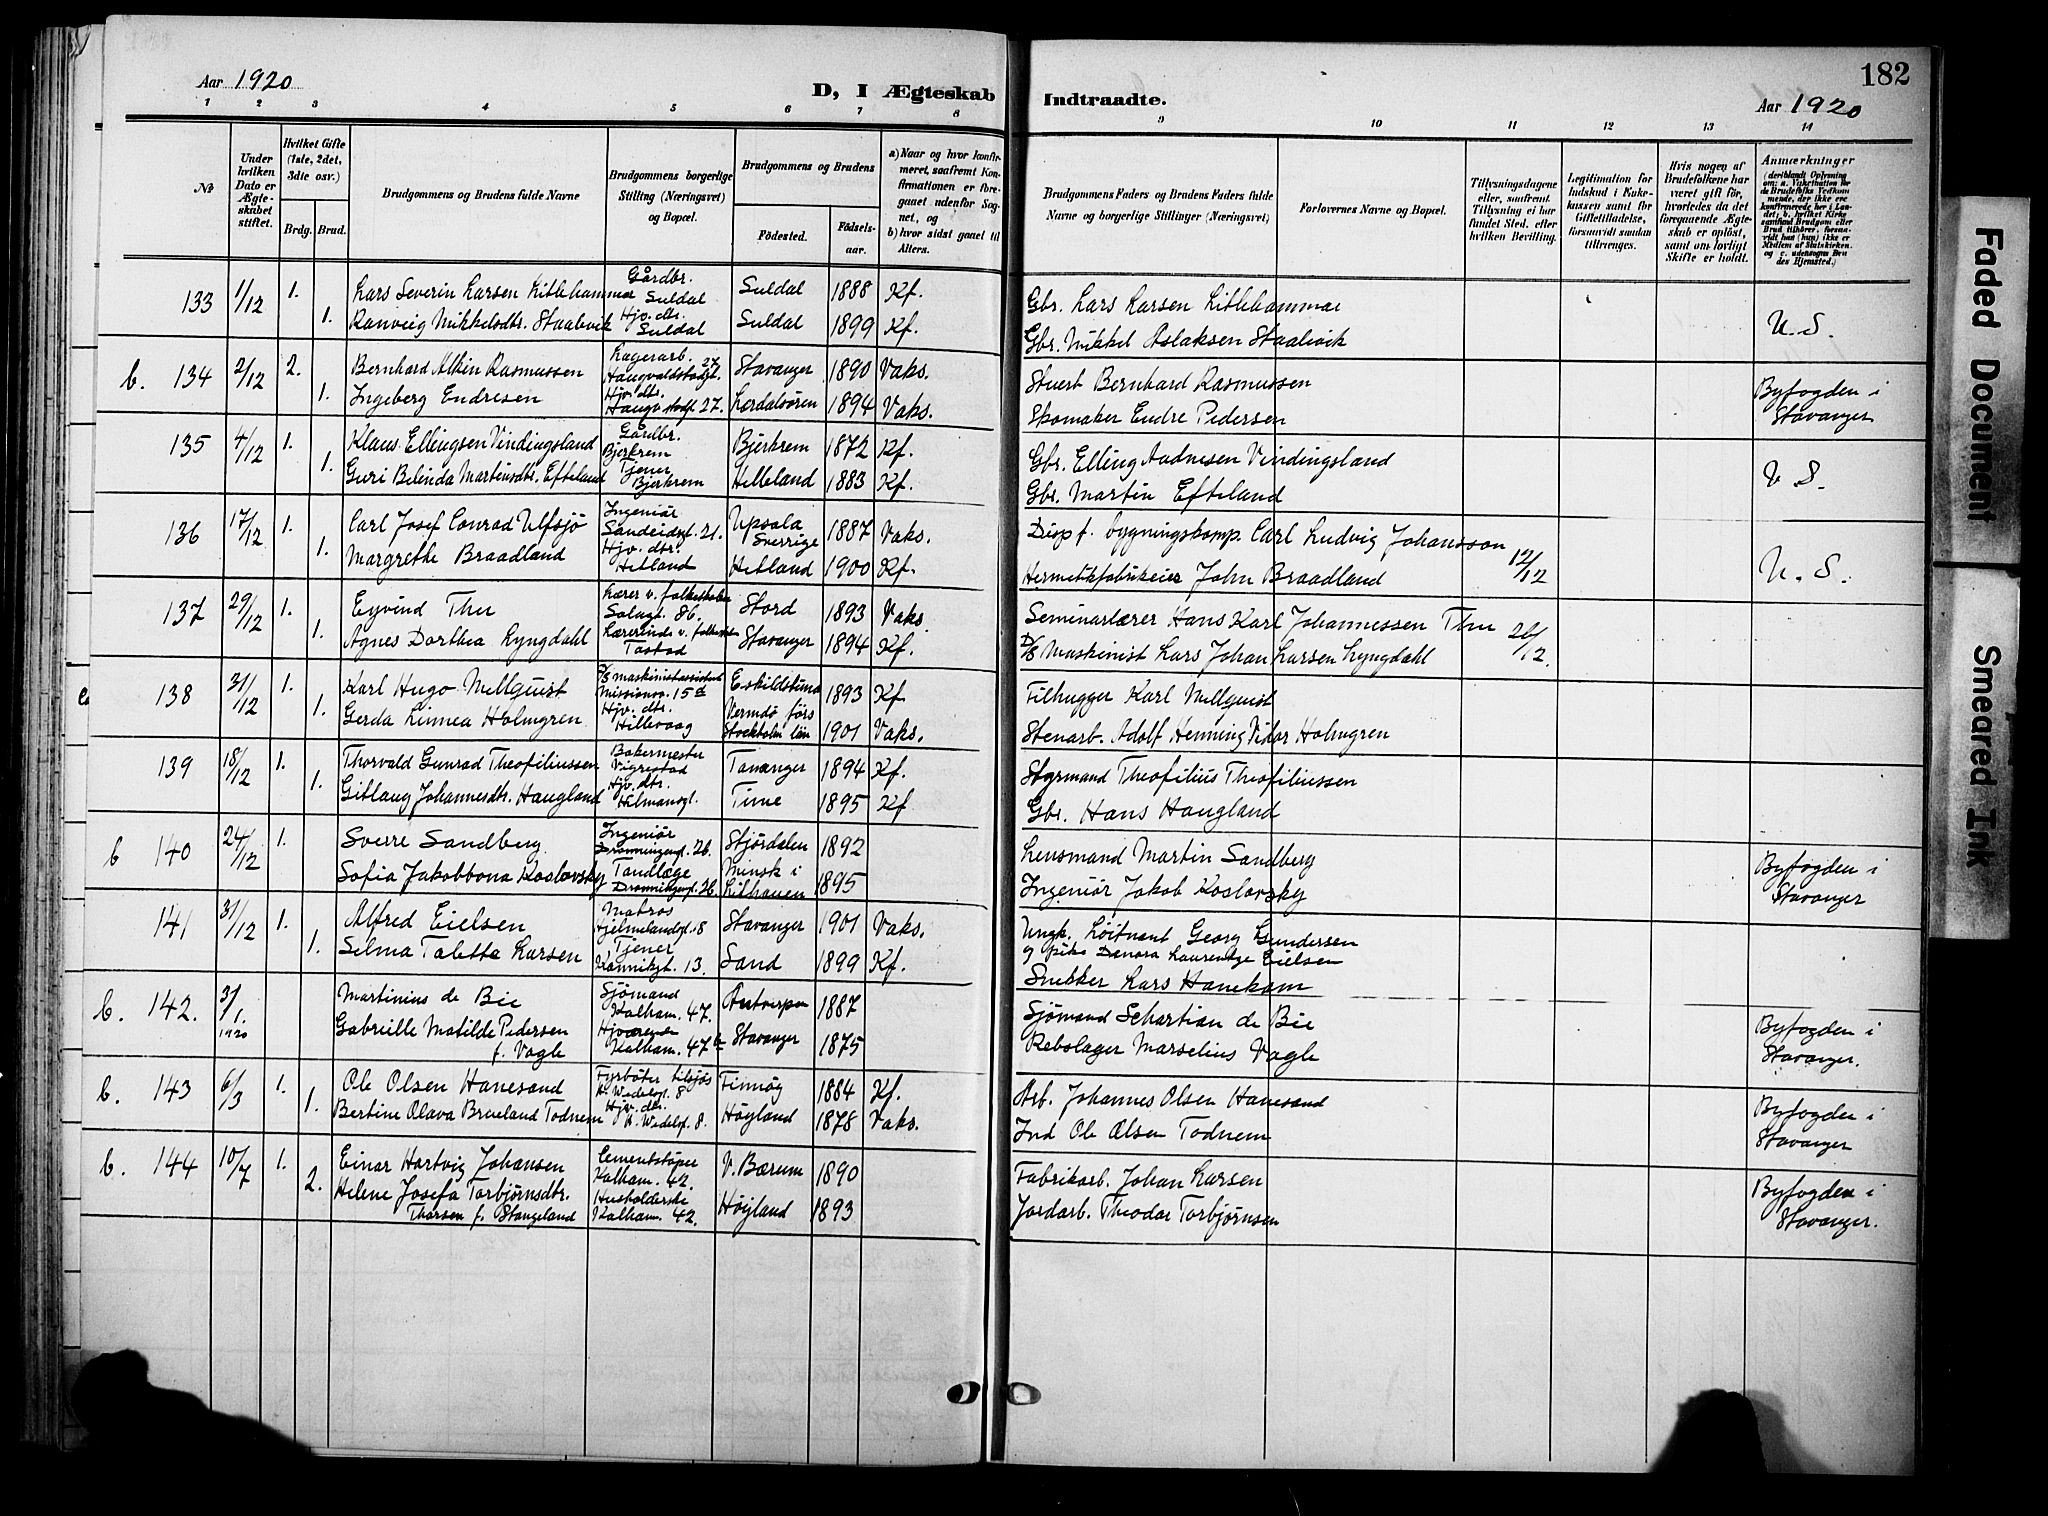 Aar 1920
D, I Ægteskab
1 2 3 4 5 6 7 8
Nr
Under hvilken Dato er Ægteskabet stiftet.
Hvilket Gifte (1ste, 2det, 3die osv.)
Brdg. Brud.
Brudgommens og Brudens fulde Navne
Brudgommens borgerlige Stilling (Næringsvei) og Bopæl.
Brudgommens og Brudens
Fødested. Fødselsaar.
a) Naar og hvor konfirmeret, saafremt Konfirmationen er foregaaet udenfor Sognet, og
b) hvor sidst gaaet til Alters.
133 1/12 1. Lars Severin Larsen Litlehammar Gårdbr. Suldal Suldal 1888 Kf.
1. Ranveig Mikkelsdtr. Staalevik Hjv. dtr. Suldal Suldal 1899 Kf.
b. 134 2/12 2. Bernhard Rasmussen Lagerarb. Haugvaldstadgt. 27 Stavanger 1890 Vaks.
1. Ingeborg Endresen Hjv. dtr. 27. Lerdalsören 1894 Vaks.
135 4/12 1. Klaus Ellingsen Vindingsland Gårdbr. Bjerkrem Bjerkrem 1872 Kf.
1. Guri Belinda Martinsdtr. Efteland Tjener Bjerkrem Helleland 1883 Kf.
136 17/12 1. Carl Josef Conrad Ulfsjö Ingeniör Sandeidgt. 21. Upsala Sverrige 1887 Vaks.
1. Margrethe Braadland Hjv. dtr. Hetland Hetland 1900 Kf.
137 29/12 1. Eyvind Thu Lærer v. folkeskolen Solagt. 86. Stord 1893 Vaks.
1. Agnes Dorthea Lyngdahl Lærerinde v. Tastad Stavanger 1894 Kf.
138 31/12 1. Karl Hugo Mellquist D/S maskinistassistent Missionsv. 15 Eskildstuna 1893 Kf.
1. Gerda Linnea Holmgren Hjv. dtr. Hillevaag Vermdö förs Stockholm län 1901 Vaks.
139 18/12 1. Thorvald Gunrad Theofiliussen Bakermester Vigrestad Tananger 1894 Kf.
1. Gitlaug Johannesdtr. Haugland Hjv. dtr. Time 1895 Kf.
b 140 24/12 1. Sverre Sandberg Ingeniör Dronningensgt. 26. Stjördalen 1892
Sofia Jakobbona Koslovsky Tandlæge Dronningensgt. 26. Minsk i Lithauen 1895
141 31/12 1. Alfred Eielsen Matros Hjelmelandsgt. 8 Stavanger 1901 Vaks.
1. Selma Talette Larsen Tjener Kannikgt. 13. Sand 1899 Kf.
b. 142. 3/1. 1920 Martinius de Bie Sjömand Kalham. 47. Antverpen 1887
Gabrielle Matilde Pedersen f. Vagle Kalham. 47 Stavanger 1875
b. 143 6/3 1. Ole Olsen Hanesand Fyrböter tilsjøs Wedelsgt. 8 Finnöy 1884 Kf.
1. Bertine Olava Brueland Todnem Hjv. dtr. Wedelsgt. 8. Höyland 1878 Vaks.
b. 144 10/7 1. Einar Hartvig Johansen Cementstöper Kalham. 42. V. Bærum 1890
2. Helene Josefa Torbjörnsdtr. Thorsen f. Stangeland Husholderske Kalham. 42. Höyland 1893
Indtraadte.
182
Aar 1920
9 10 11 12 13 14
Brudgommens Faders og Brudens Faders fulde Navne og borgerlige Stillinger (Næringsvei)
Forlovernes Navne og Bopæl.
Tillysningsdagene eller, saafremt Tillysning ei har fundet Sted, efter hvilken Bevilling.
Legitimation for Indskud i Enkekassen samt for Giftetilladelse, forsaavidt saadan tiltrenges.
Hvis nogen af Brudefolkene har været gift før, hvorledes da det foregaaende Ægteskab er opløst, samt om lovligt Skifte er holdt.
Anmærkninger (deriblandt Oplysning om: a. Vakcination for de Brudefolks Vedkommende, der ikke ere konfirmerede her i Landet; b. hvilket Kirkesamfund Brudgom eller Brud tilhører, forsaavidt han (hun) ikke er Medlem af Statskirken. og c. udensogns Brudes Hjemsted.)
Gbr. Lars Larsen Litlehammar
Gbr. Mikkel Aslaksen Staalevik U. S.
Stuert Bernhard Rasmussen
Skomaker Endre Pedersen Byfogden i Stavanger
Gbr. Elling Aadnesen Vindingsland
Gbr. Martin Efteland U S.
Disp f. bygningskomp. Carl Ludvig Johansson
Hermetikfabrikeier John Braadland 12/12 U. S.
Seminarlærer Hans Karl Johannessen Thu
D/S Maskinist Lars Johan Larsen Lyngdahl /12.
Filhugger Karl Mellquist
Stenarb. Adolf Henning Viktor Holmgren
Styrmand Theofilius Theofiliussen
Gbr. Hans Haugland
Lensmand Martin Sandberg
Ingeniör Jakob Koslovsky Byfogden i Stavanger
Ungk. Löitnant Georg Gundersen
og pike Laurentze Eielsen
Snekker Lars Hanekam
Sjömand Sebastian de Bie
Rebslager Marselius Vagle Byfogden i Stavanger.
Arb. Johannes Olsen Hanesand
Ind Ole Olsen Todnem Byfogden i Stavanger
Fabrikarb. Johan Larsen
Jordarb. Theodor Torbjörnsen Byfogden i Stavanger.
Faded Document
Smeared Ink